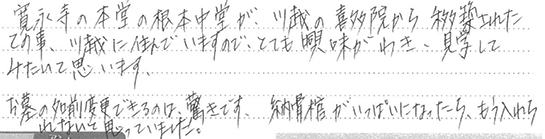 寛永寺の本堂の根本中堂が、川越の喜多院から移築された
との事、川越に住んでいますので、とても興味がわき、見学して
みたいと思います。
お墓の名前変更できるのは、驚きです。納骨棺がいっぱいになったら、もう入れら
れないと思っていました。